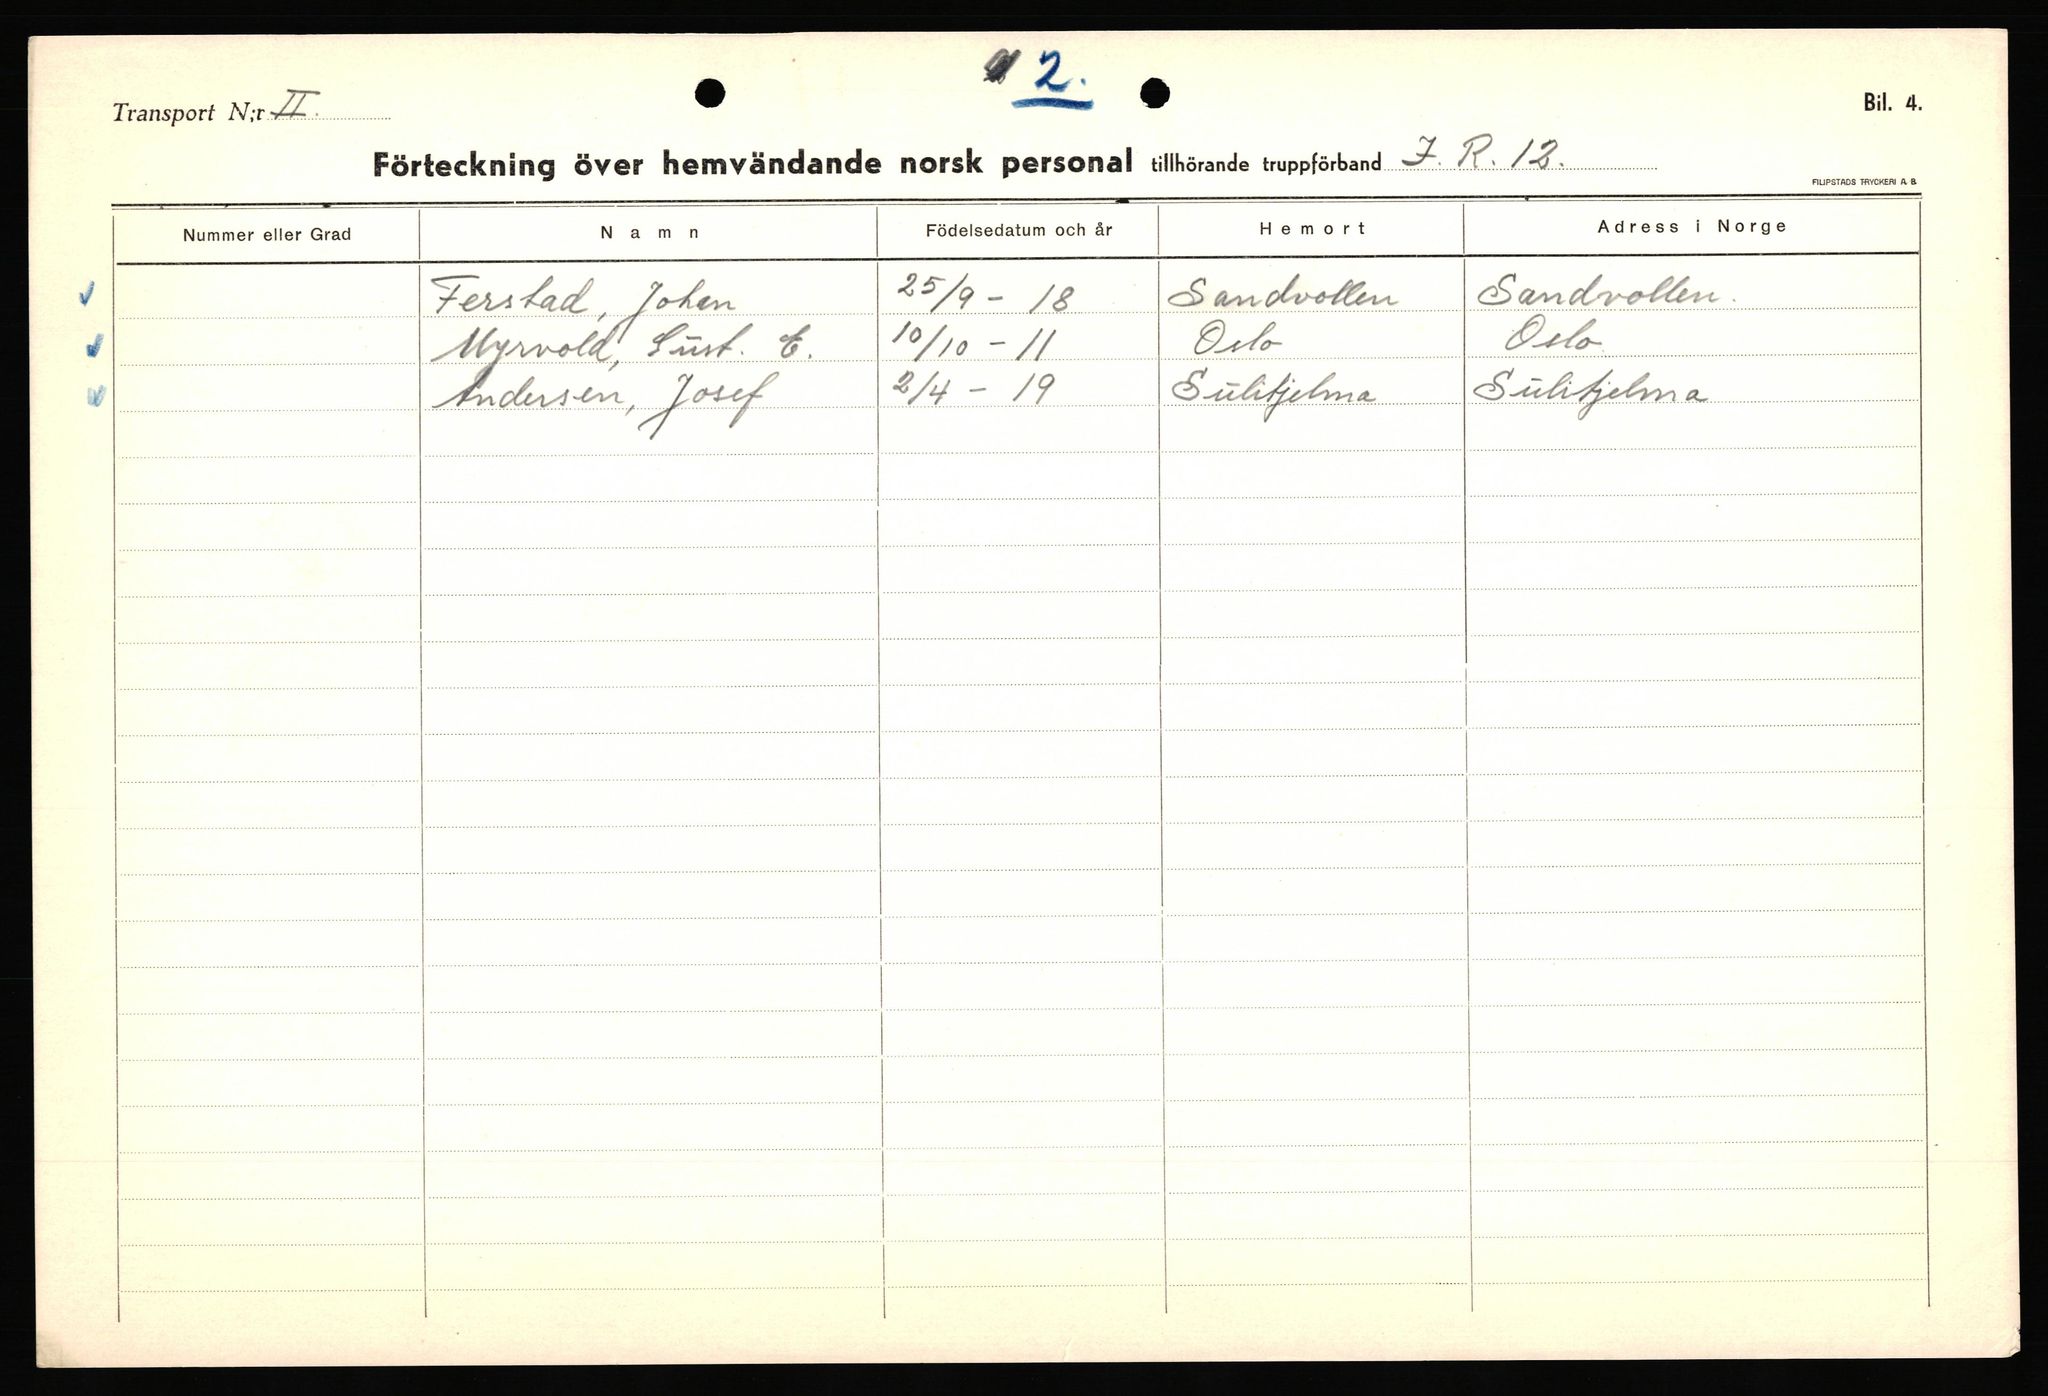 2.
Transport N;r II.
Bil. 4.
Förteckning över hemvändande norsk personal tillhörande truppförband I. R. 12.
FILIPSTADS TRYCKERI A. B.
Nummer eller Grad Namn Födelsedatum och år Hemort Adress i Norge
Ferstad, Johan 25/9 - 18 Sandvollen Sandvollen.
Myrvold, Gust. E. 10/10 - 11 Oslo Oslo
Andersen, Josef 2/4 - 19 Sulitjelma Sulitjelma